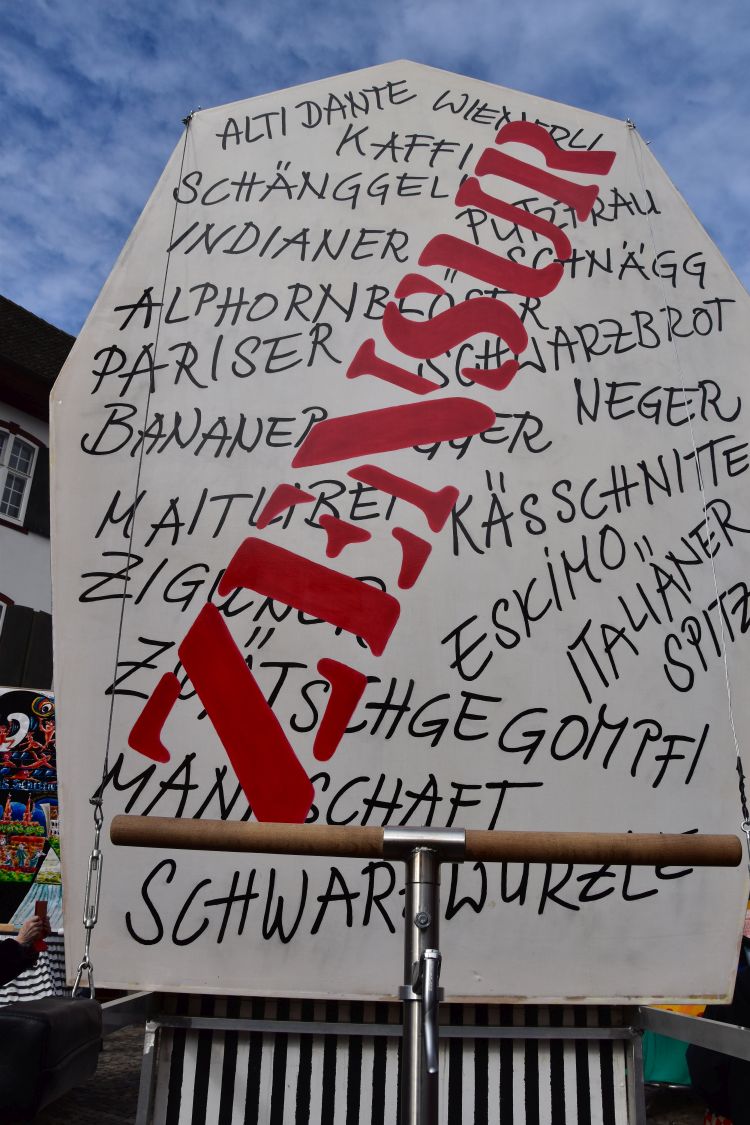 ALTI DANTE WIENERLI
KAFFI
SCHÄNGGELI PUTZFRAU
INDIANER SCHNÄGG
ALPHORNBLÖSER
PARISER SCHWARZBROT
BANANE NEGER
MAITLIBEI KÄSSCHNITTE
ZIGÜNER ESKIMO
ITALIÄNER
SPITZ
TSCHGEGOMPFI
MANNSCHAFT
SCHWARZWURZLE
ZENSUR